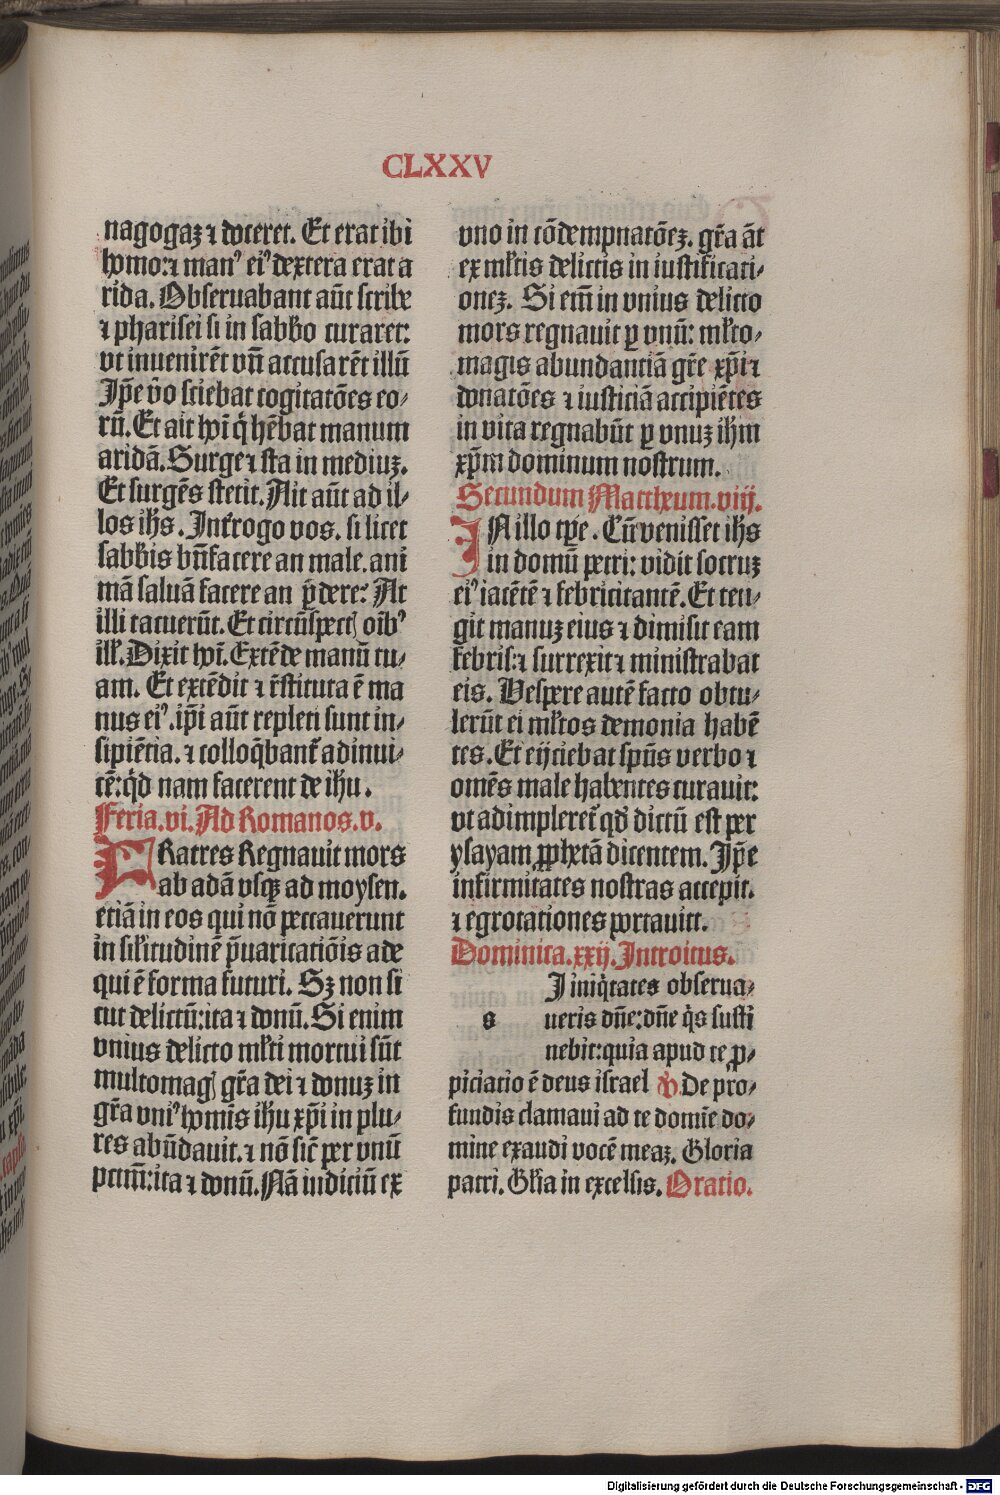 CLXXV
nagogaʒ ⁊ doceret. Et erat ibi
homo:⁊ manꝰ eiꝰ dextera erat a
rida. Obseruabant aūt scribe
⁊ pharisei si in sabb̄o curaret:
vt inuenirēt vn̄ accusarēt illū
Jp̄e v̄o sciebat cogitatōes eo⸗
rū. Et ait hoī q̄ hēbat manum
aridā. Surge ⁊ sta in mediuʒ.
Et surgēs stetit. Ait aūt ad il⸗
los ihs. Int̄rogo vos. si licet
sabb̄is bn̄facere an male. ani
mā saluā facere an ꝑdere? At
illi tacuerūt. Et circūspectꝭ oībꝰ
ill̄. Dixit hoī. Extēde manū tu⸗
am. Et extēdit ⁊ r̄stituta ē ma
nus eiꝰ. ip̄i aūt repleti sunt in⸗
sipiētia. ⁊ colloq̄bant̄ adinui⸗
cē: qͥd nam facerent de ihu.
Feria.vi. Ad Romanos.v.
FRatres Regnauit mors
ab adā vsqꝫ ad moysen.
etiā in eos qui nō peccauerunt
in sil̄itudinē p̄uaricatiōis ade
qui ē forma futuri. Sʒ non si
cut delictū: ita ⁊ donū. Si enim
vnius delicto ml̄ti mortui sūt
multomagꝭ gr̄a dei ⁊ donuʒ in
gr̄a vniꝰ homīs ihu xp̄i in plu⸗
res abūdauit. ⁊ nō sic̄ per vnū
pctm̄: ita ⁊ donū. Nā iudiciū ex
vno in cōdempnatōeʒ. gr̄a āt
ex ml̄tis delictis in iustificati⸗
oneʒ. Si em̄ in vnius delicto
mors regnauit ꝑ vnū: ml̄to⸗
magis abundantiā gr̄e xp̄i ⁊
donatōes ⁊ iusticiā accipiētes
in vita regnabūt ꝑ vnuʒ ihm
xp̄m dominum nostrum.
Secundum Mattheum.viij.
IN illo tp̄e. Cū venisset ihs
in domū petri: vidit socruʒ
eiꝰ iacētē ⁊ febricitantē. Et teti⸗
git manuʒ eius ⁊ dimisit eam
febris:⁊ surrexit ⁊ ministrabat
eis. Vespere autē facto obtu⸗
lerūt ei ml̄tos demonia habē
tes. Et eijciebat spūs verbo ⁊
omēs male habentes curauit:
vt adimpleret̄ qd̄ dictū est per
ysayam ꝓphetā dicentem. Jp̄e
infirmitates nostras accepit.
⁊ egrotationes portauit.
Dominica.xxij. Introitus.
s I iniq̄tates obserua⸗
ueris dn̄e: dn̄e q̄s susti
nebit: quia apud te ꝓ⸗
piciatio ē deus israel ℣. De pro⸗
fundis clamaui ad te domīe do⸗
mine exaudi vocē meaʒ. Gloria
patri. Gl̄ia in excelsis. Oratio.
Digitalisierung gefördert durch die Deutsche Forschungsgemeinschaft - DFG